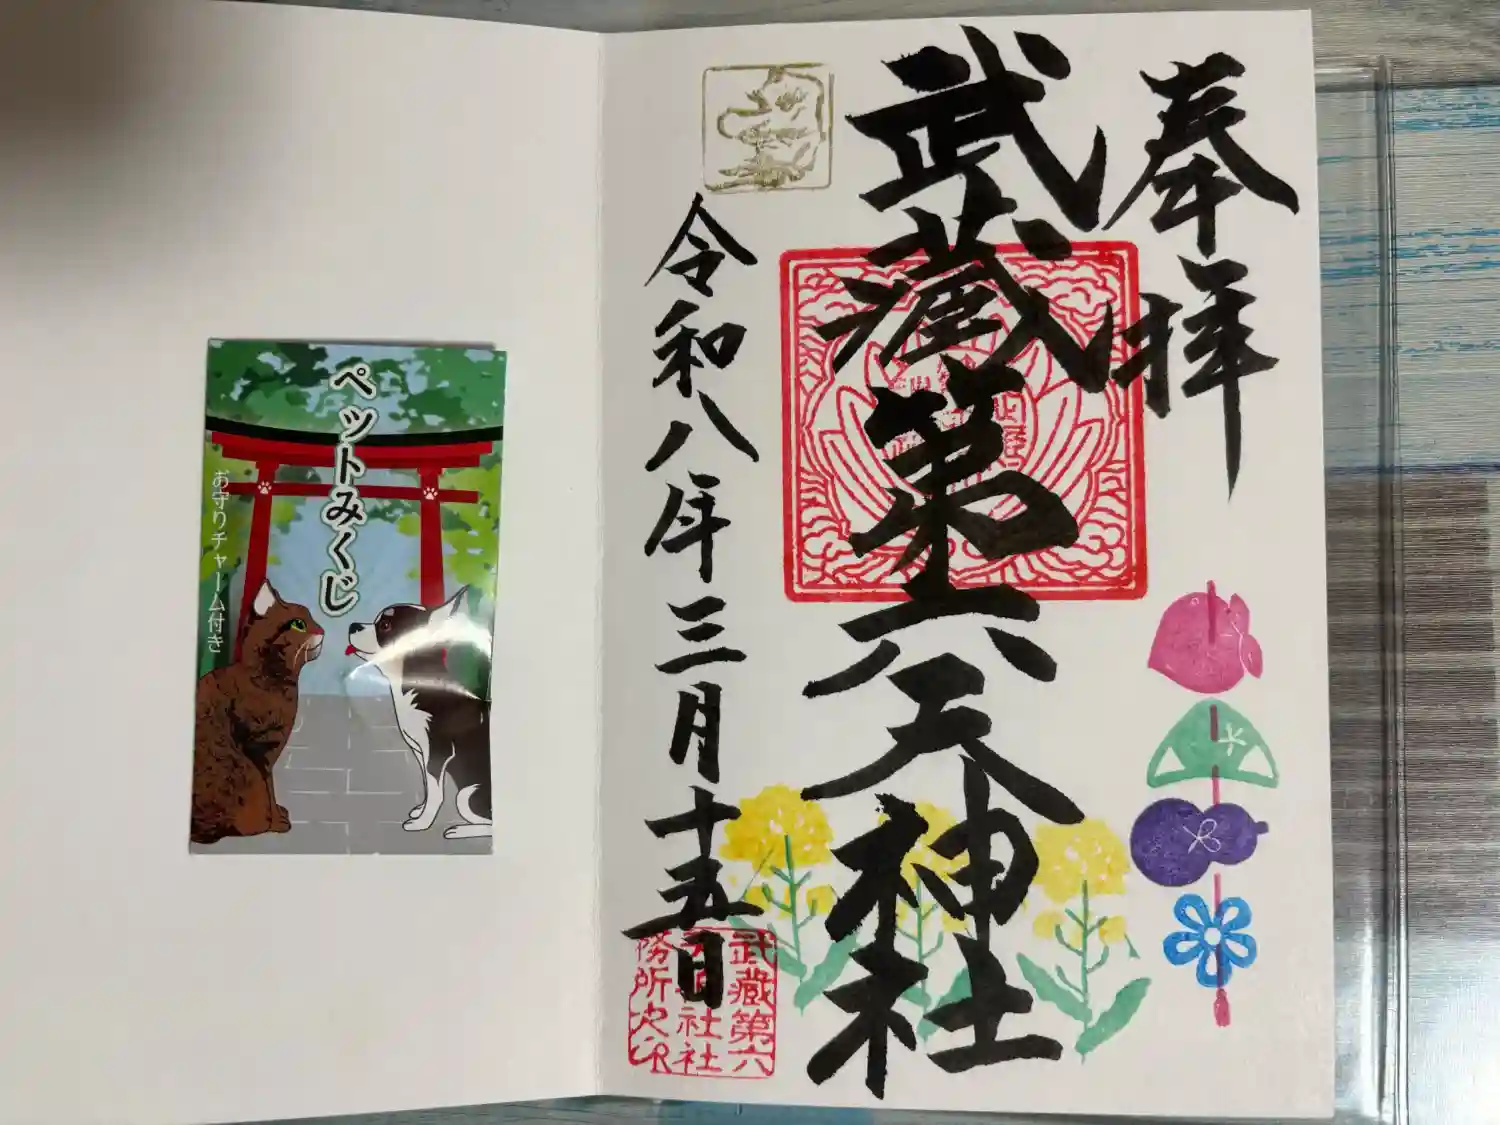 奉拝
武蔵第六天神社
令和八年三月十五日
武蔵第六
社社
務所之印
ペットみくじ
お守りチャーム付き